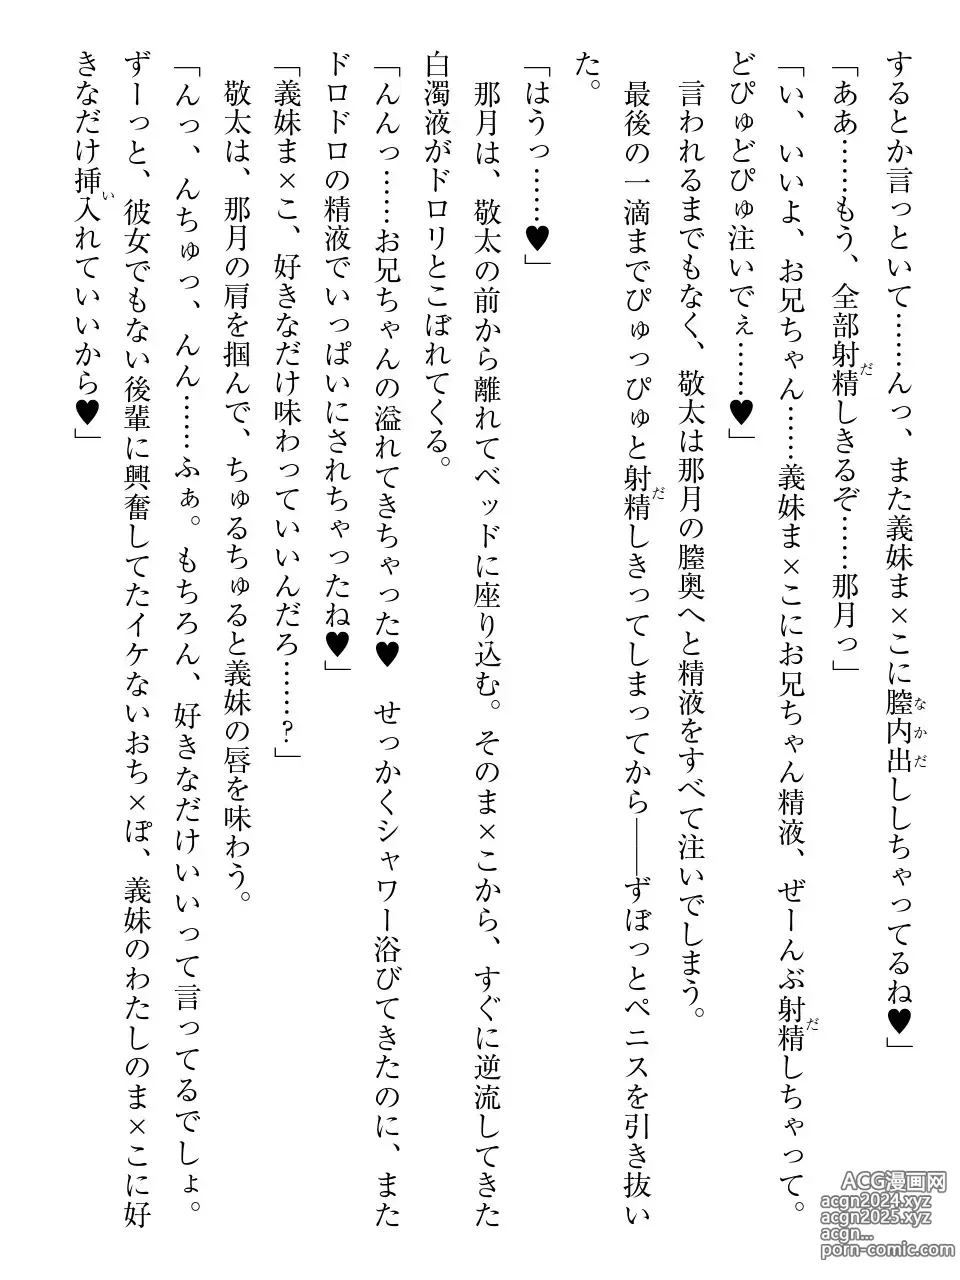 するとか言っといて……んっ、また義妹ま×こに膣内出ししちゃってるね♥」
「ああ……もう、全部射精しきるぞ……那月っ」
「い、いいよ、お兄ちゃん……義妹ま×こにお兄ちゃん精液、ぜーんぶ射精しちゃって。
どぴゅどぴゅ注いでぇ……♥」
言われるまでもなく、敬太は那月の膣奥へと精液をすべて注いでしまう。
最後の一滴までぴゅっぴゅと射精しきってしまってから――ずぼっとペニスを引き抜い
た。
「はうっ……♥」
那月は、敬太の前から離れてベッドに座り込む。そのま×こから、すぐに逆流してきた
白濁液がドロリとこぼれてくる。
「んんっ……お兄ちゃんの溢れてきちゃった♥　せっかくシャワー浴びてきたのに、また
ドロドロの精液でいっぱいにされちゃったね♥」
「義妹ま×こ、好きなだけ味わっていいんだろ……？」
敬太は、那月の肩を掴んで、ちゅるちゅると義妹の唇を味わう。
「んっ、んちゅっ、んん……ふぁ。もちろん、好きなだけいいって言ってるでしょ。
ずーっと、彼女でもない後輩に興奮してたイケないおち×ぽ、義妹のわたしのま×こに好
きなだけ挿入れていいから♥」
ACG漫画网
acgn2024.xyz
acgn2025.xyz
acgn...
porn-comic.com